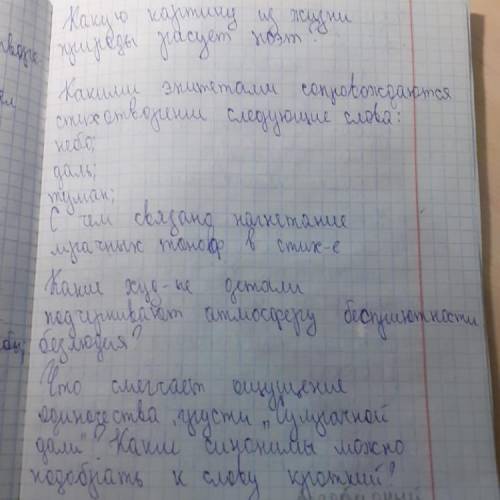 Какую картину из жизни
природы рисует поэт?
Какими эпитетами сопровождаются
стихотворении следующие слова:
небо;
даль;
туман;
С чем связано нагнетание
мрачных тонов в стих-е
Какие худ-ые детали
подчёркивают атмосферу бесприютности
безлюдия?
Что смягчает ощущение
одиночества, грусти "сумрачной
дали"? Какие синонимы можно
подобрать к слову кроткий?